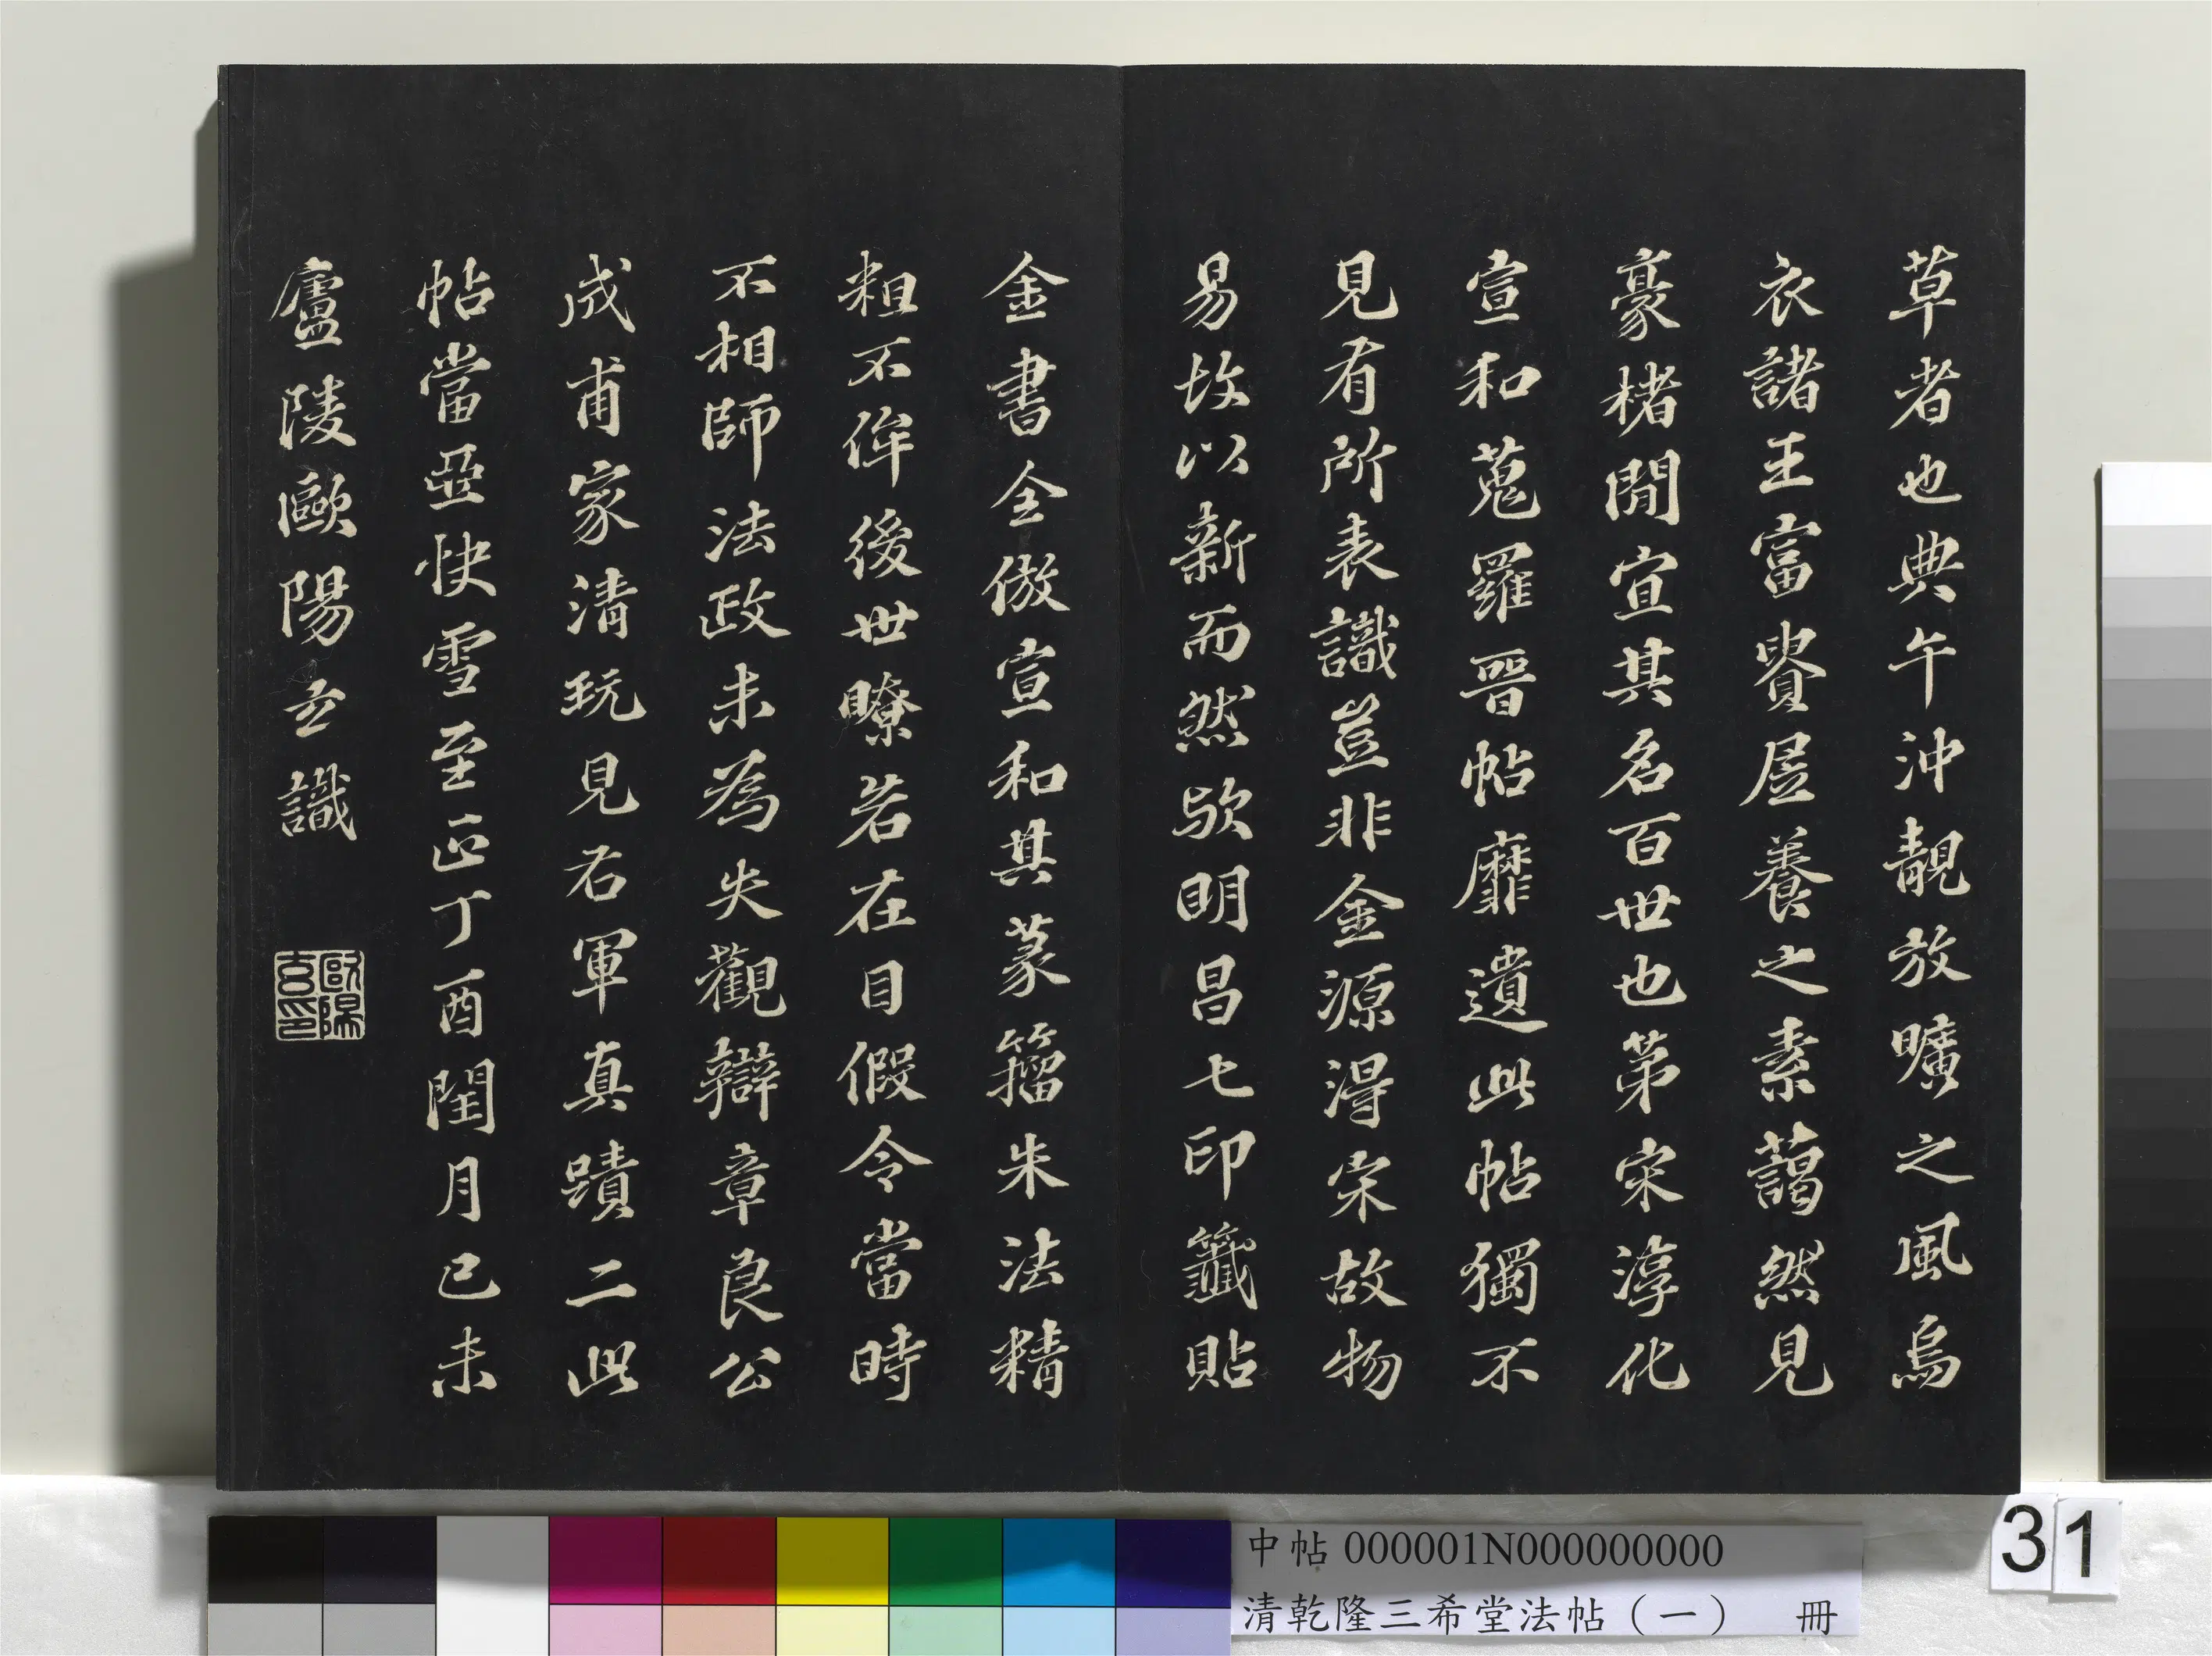 草者也典午沖靚放曠之風烏
衣諸王富貴居養之素藹然見
豪楮間宜其名百世也第宋淳化
宣和蒐羅晉帖靡遺此帖獨不
見有所表識豈非金源得宋故物
易故以新而然歟明昌七印籤貼
金書全倣宣和其篆籀朱法精
粗不侔後世瞭若在目假令當時
不相師法政未為失觀辯章良公
成甫家清玩見右軍真蹟二此
帖當亞快雪至正丁酉閏月己未
廬陵歐陽玄識
歐陽玄印
中帖 000001N000000000
清乾隆三希堂法帖（一） 冊
31